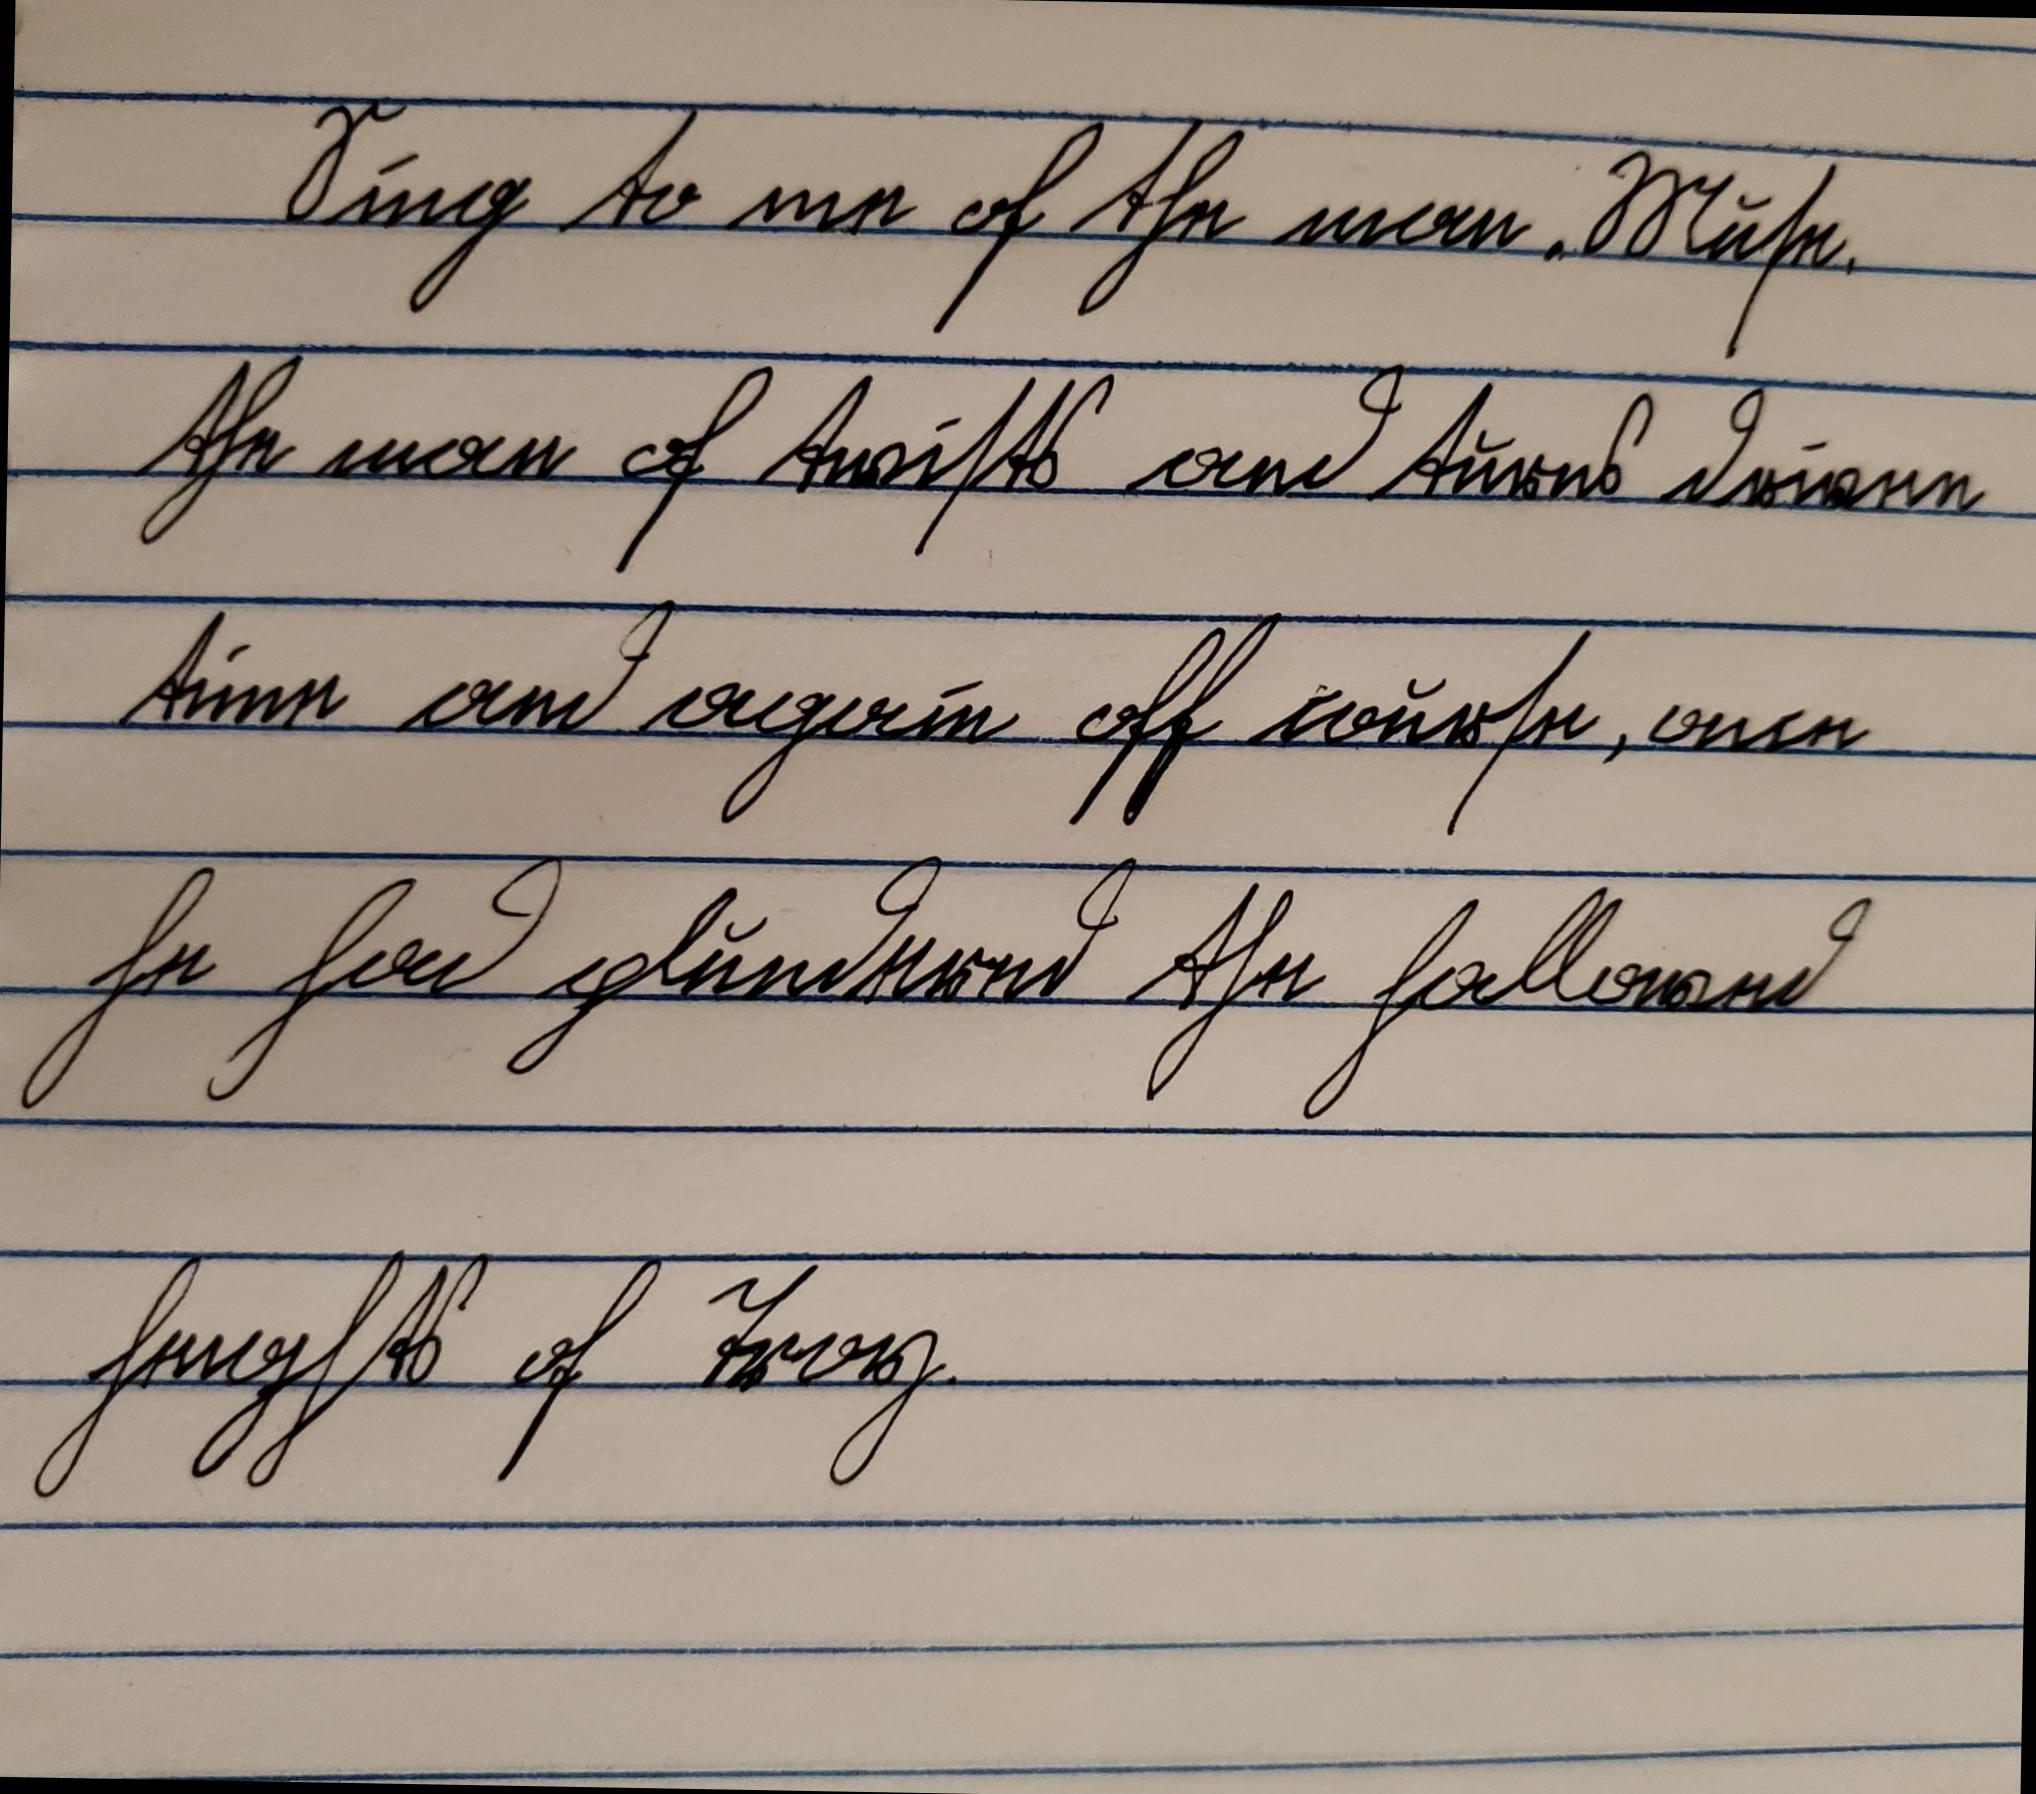 Sing to me of the man, Muse,
the man of twiſts and turns driven
time and again off courſe, once
he had plundered the hallowed
heights of Troy.